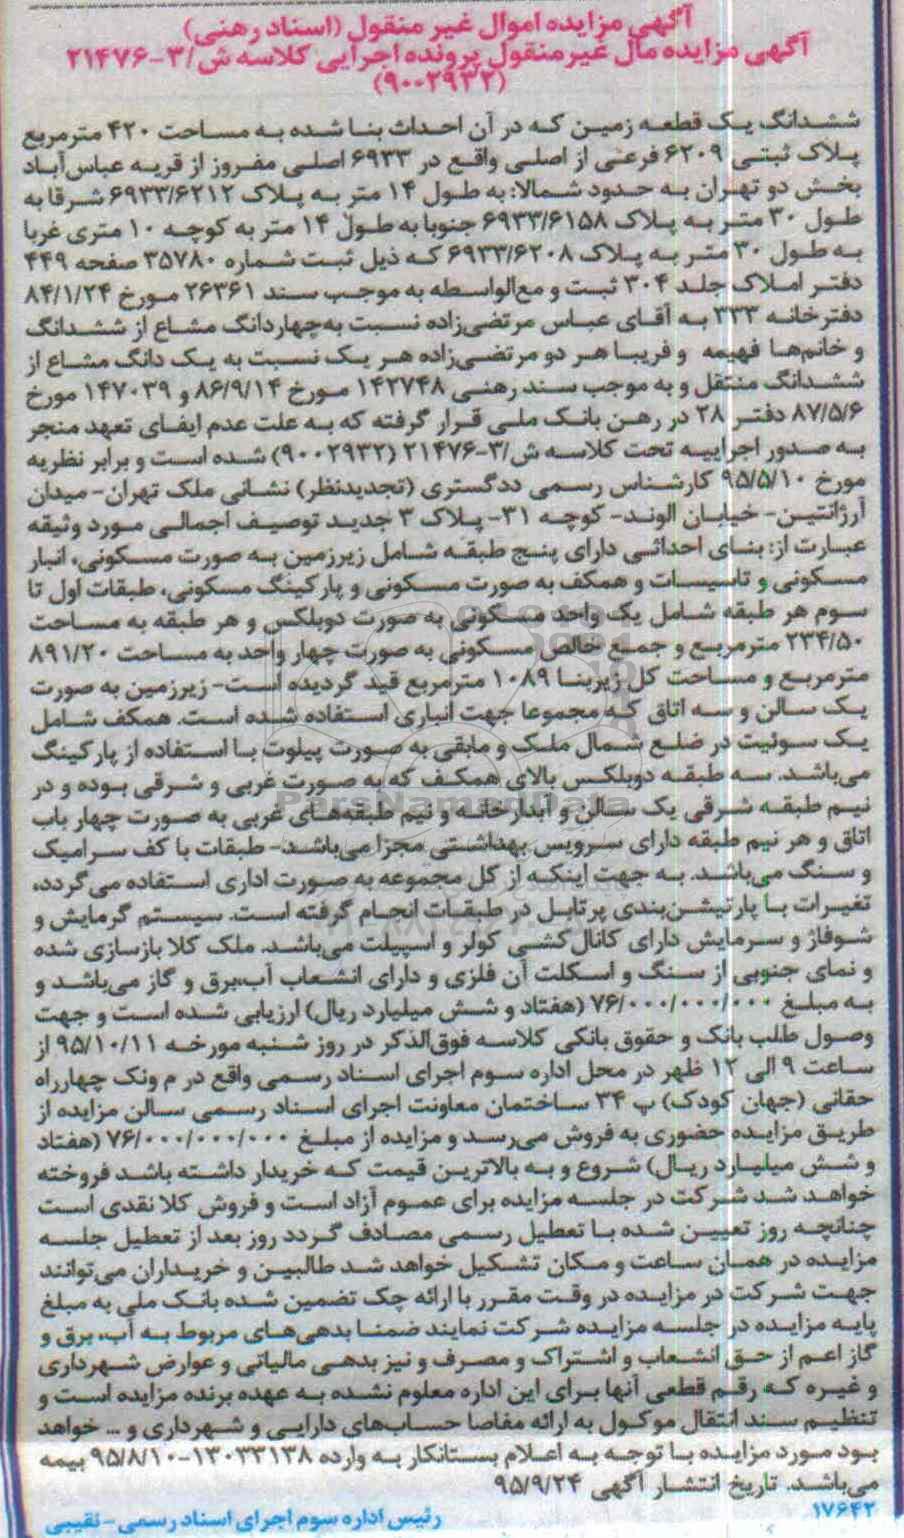 آگهی مزایده اموال غیر منقول (اسناد رهنی)
آگهی مزایده مال غیرمنقول پرونده اجرایی کلاسه ش/۳-۲۱۴۷۶
(۹۰۰۲۹۳۲)
ششدانگ یک قطعه زمین که در آن احداث بنا شده به مساحت ۴۲۰ مترمربع
پلاک ثبتی ۶۲۰۹ فرعی از اصلی واقع در ۶۹۳۳ اصلی مفروز از قریه عباس‌آباد
بخش دو تهران به حدود شمالا: به طول ۱۴ متر به پلاک ۶۹۳۳/۶۲۱۲ شرقا به
طول ۳۰ متر به پلاک ۶۹۳۳/۶۱۵۸ جنوبا به طول ۱۴ متر به کوچه ۱۰ متری غربا
به طول ۳۰ متر به پلاک ۶۹۳۳/۶۲۰۸ که ذیل ثبت شماره ۳۵۷۸۰ صفحه ۴۴۹
دفتر املاک جلد ۳۰۴ ثبت و مع‌الواسطه به موجب سند ۲۶۳۶۱ مورخ ۸۴/۱/۲۴
دفترخانه ۳۳۳ به آقای عباس مرتضی‌زاده نسبت به‌چهاردانگ مشاع از ششدانگ
و خانم‌ها فهیمه و فریبا هر دو مرتضی‌زاده هر یک نسبت به یک دانگ مشاع از
ششدانگ منتقل و به موجب سند رهنی ۱۴۲۷۴۸ مورخ ۸۶/۹/۱۴ و ۱۴۷۰۳۹ مورخ
۸۷/۵/۶ دفتر ۲۸ در رهن بانک ملی قرار گرفته که به علت عدم ایفای تعهد منجر
به صدور اجراییه تحت کلاسه ش/۳-۲۱۴۷۶ (۹۰۰۲۹۳۲) شده است و برابر نظریه
مورخ ۹۵/۵/۱۰ کارشناس رسمی ددگستری (تجدیدنظر) نشانی ملک تهران- میدان
آرژانتین- خیابان الوند- کوچه ۳۱- پلاک ۳ جدید توصیف اجمالی مورد وثیقه
عبارت از: بنای احداثی دارای پنج طبقه شامل زیرزمین به صورت مسکونی، انبار
مسکونی و تاسیسات و همکف به صورت مسکونی و پارکینگ مسکونی، طبقات اول تا
سوم هر طبقه شامل یک واحد مسکونی به صورت دوبلکس و هر طبقه به مساحت
۲۳۴/۵۰ مترمربع و جمع خالص مسکونی به صورت چهار واحد به مساحت ۸۹۱/۲۰
مترمربع و مساحت کل زیربنا ۱۰۸۹ مترمربع قید گردیده است- زیرزمین به صورت
یک سالن و سه اتاق که مجموعا جهت انباری استفاده شده است. همکف شامل
یک سوئیت در ضلع شمال ملک و مابقی به صورت پیلوت با استفاده از پارکینگ
می‌باشد. سه طبقه دوبلکس بالای همکف که به صورت غربی و شرقی بوده و در
نیم طبقه شرقی یک سالن و آبدارخانه و نیم طبقه‌های غربی به صورت چهار باب
اتاق و هر نیم طبقه دارای سرویس بهداشتی مجزا می‌باشد- طبقات با کف سرامیک
و سنگ می‌باشد. به جهت اینکه از کل مجموعه به صورت اداری استفاده می‌گردد،
تغیرات با پارتیشن‌بندی پرتابل در طبقات انجام گرفته است. سیستم گرمایش و
شوفاژ و سرمایش دارای کانال‌کشی کولر و اسپیلت می‌باشد. ملک کلا بازسازی شده
و نمای جنوبی از سنگ و اسکلت آن فلزی و دارای انشعاب آب،برق و گاز می‌باشد و
به مبلغ ۷۶/۰۰۰/۰۰۰/۰۰۰ (هفتاد و شش میلیارد ریال) ارزیابی شده است و جهت
وصول طلب بانک و حقوق بانکی کلاسه فوق‌الذکر در روز شنبه مورخه ۹۵/۱۰/۱۱ از
ساعت ۹ الی ۱۲ ظهر در محل اداره سوم اجرای اسناد رسمی واقع در م ونک چهارراه
حقانی (جهان کودک) پ ۳۴ ساختمان معاونت اجرای اسناد رسمی سالن مزایده از
طریق مزایده حضوری به فروش می‌رسد و مزایده از مبلغ ۷۶/۰۰۰/۰۰۰/۰۰۰ (هفتاد
و شش میلیارد ریال) شروع و به بالاترین قیمت که خریدار داشته باشد فروخته
خواهد شد شرکت در جلسه مزایده برای عموم آزاد است و فروش کلا نقدی است
چنانچه روز تعیین شده با تعطیل رسمی مصادف گردد روز بعد از تعطیل جلسه
مزایده در همان ساعت و مکان تشکیل خواهد شد طالبین و خریداران می‌توانند
جهت شرکت در مزایده در وقت مقرر با ارائه چک تضمین شده بانک ملی به مبلغ
پایه مزایده در جلسه مزایده شرکت نمایند ضمنا بدهی‌های مربوط به آب، برق و
گاز اعم از حق انشعاب و اشتراک و مصرف و نیز بدهی مالیاتی و عوارض شهرداری
و غیره که رقم قطعی آنها برای این اداره معلوم نشده به عهده برنده مزایده است و
تنظیم سند انتقال موکول به ارائه مفاصا حساب‌های دارایی و شهرداری و ... خواهد
بود مورد مزایده با توجه به اعلام بستانکار به وارده ۱۳۰۳۳۱۳۸-۹۵/۸/۱۰ بیمه
می‌باشد. تاریخ انتشار آگهی ۹۵/۹/۲۴
۱۷۶۴۲ رئیس اداره سوم اجرای اسناد رسمی - نقیبی
ParsNamadData